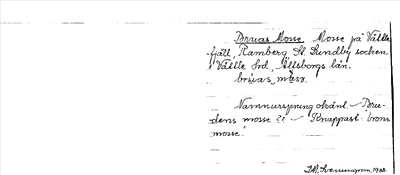 Bruas Mosse. Mosse på Vättle
fjäll, Ramberg, St. Lundby socken
i Vättle hd, Älfsborgs län.
brúas måsa
Namnursprung okänt – Bru-
dens mosse?? – Knappast "brons
mosse".
1932